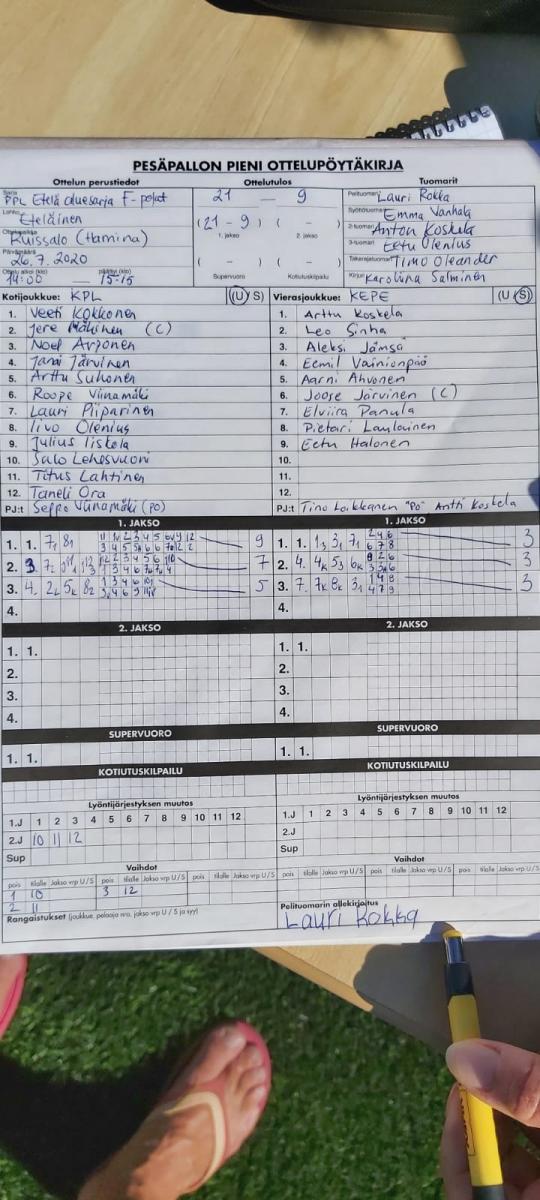 PESÄPALLON PIENI OTTELUPÖYTÄKIRJA
Ottelun perustiedot Ottelutulos Tuomarit
Sarja PPL Etelä aluesarja F-pojat
Lohko Eteläinen
Ottelupaikka Ruissalo (Hamina)
Päivämäärä 26.7.2020
Ottelu alkoi (klo) 14:00 — päättyi (klo) 15:15
21 — 9
(21 - 9) ( - )
1. jakso 2. jakso
( - ) ( - )
Supervuoro Kotiutuskilpailu
Pelituomari Lauri Rokka
Syöttötuomari Emma Vanhala
2-tuomari Anton Koskela
3-tuomari Eetu Olenius
Takarajatuomari Timo Oleander
Kirjuri Karoliina Salminen
Kotijoukkue: KPL (U/S)
1. Veeti Kokkonen
2. Jere Mäkinen (C)
3. Noel Arponen
4. Jani Järvinen
5. Arttu Suhonen
6. Roope Viinamäki
7. Lauri Piiparinen
8. Iivo Olenius
9. Julius Iiskola
10. Salo Lehesvuori
11. Titus Lahtinen
12. Taneli Ora
PJ:t Seppo Viinamäki (PO)
Vierasjoukkue: KEPE (U/S)
1. Arttu Koskela
2. Leo Sinha
3. Aleksi Jämsä
4. Eemil Vainionpää
5. Aarni Ahvonen
6. Joose Järvinen (C)
7. Elviira Panula
8. Pietari Laulainen
9. Eetu Halonen
10.
11.
12.
PJ:t Tino Loikkanen "PO" Antti Koskela
1. JAKSO
1. 1. 7, 8, 9
2. 7
3. 4. 2k 5k 8₂ 5
4.
1. JAKSO
1. 1. 1₃ 3, 7, 3
2. 4. 4k 5₃ 6k 3
3. 7. 7k 8k 3, 3
4.
2. JAKSO
1. 1.
2.
3.
4.
2. JAKSO
1. 1.
2.
3.
4.
SUPERVUORO
1. 1.
SUPERVUORO
1. 1.
KOTIUTUSKILPAILU
KOTIUTUSKILPAILU
Lyöntijärjestyksen muutos
1.J 1 2 3 4 5 6 7 8 9 10 11 12
2.J 10 11 12
Sup
Lyöntijärjestyksen muutos
1.J 1 2 3 4 5 6 7 8 9 10 11 12
2.J
Sup
Vaihdot
pois tilalle Jakso vrp U/S pois tilalle Jakso vrp U/S
1 10 3 12
2 11
Rangaistukset (joukkue, pelaaja nro, jakso vrp U / S ja syy)
Vaihdot
pois tilalle Jakso vrp U/S pois tilalle Jakso vrp U/S
Pelituomarin allekirjoitus
Lauri Rokka